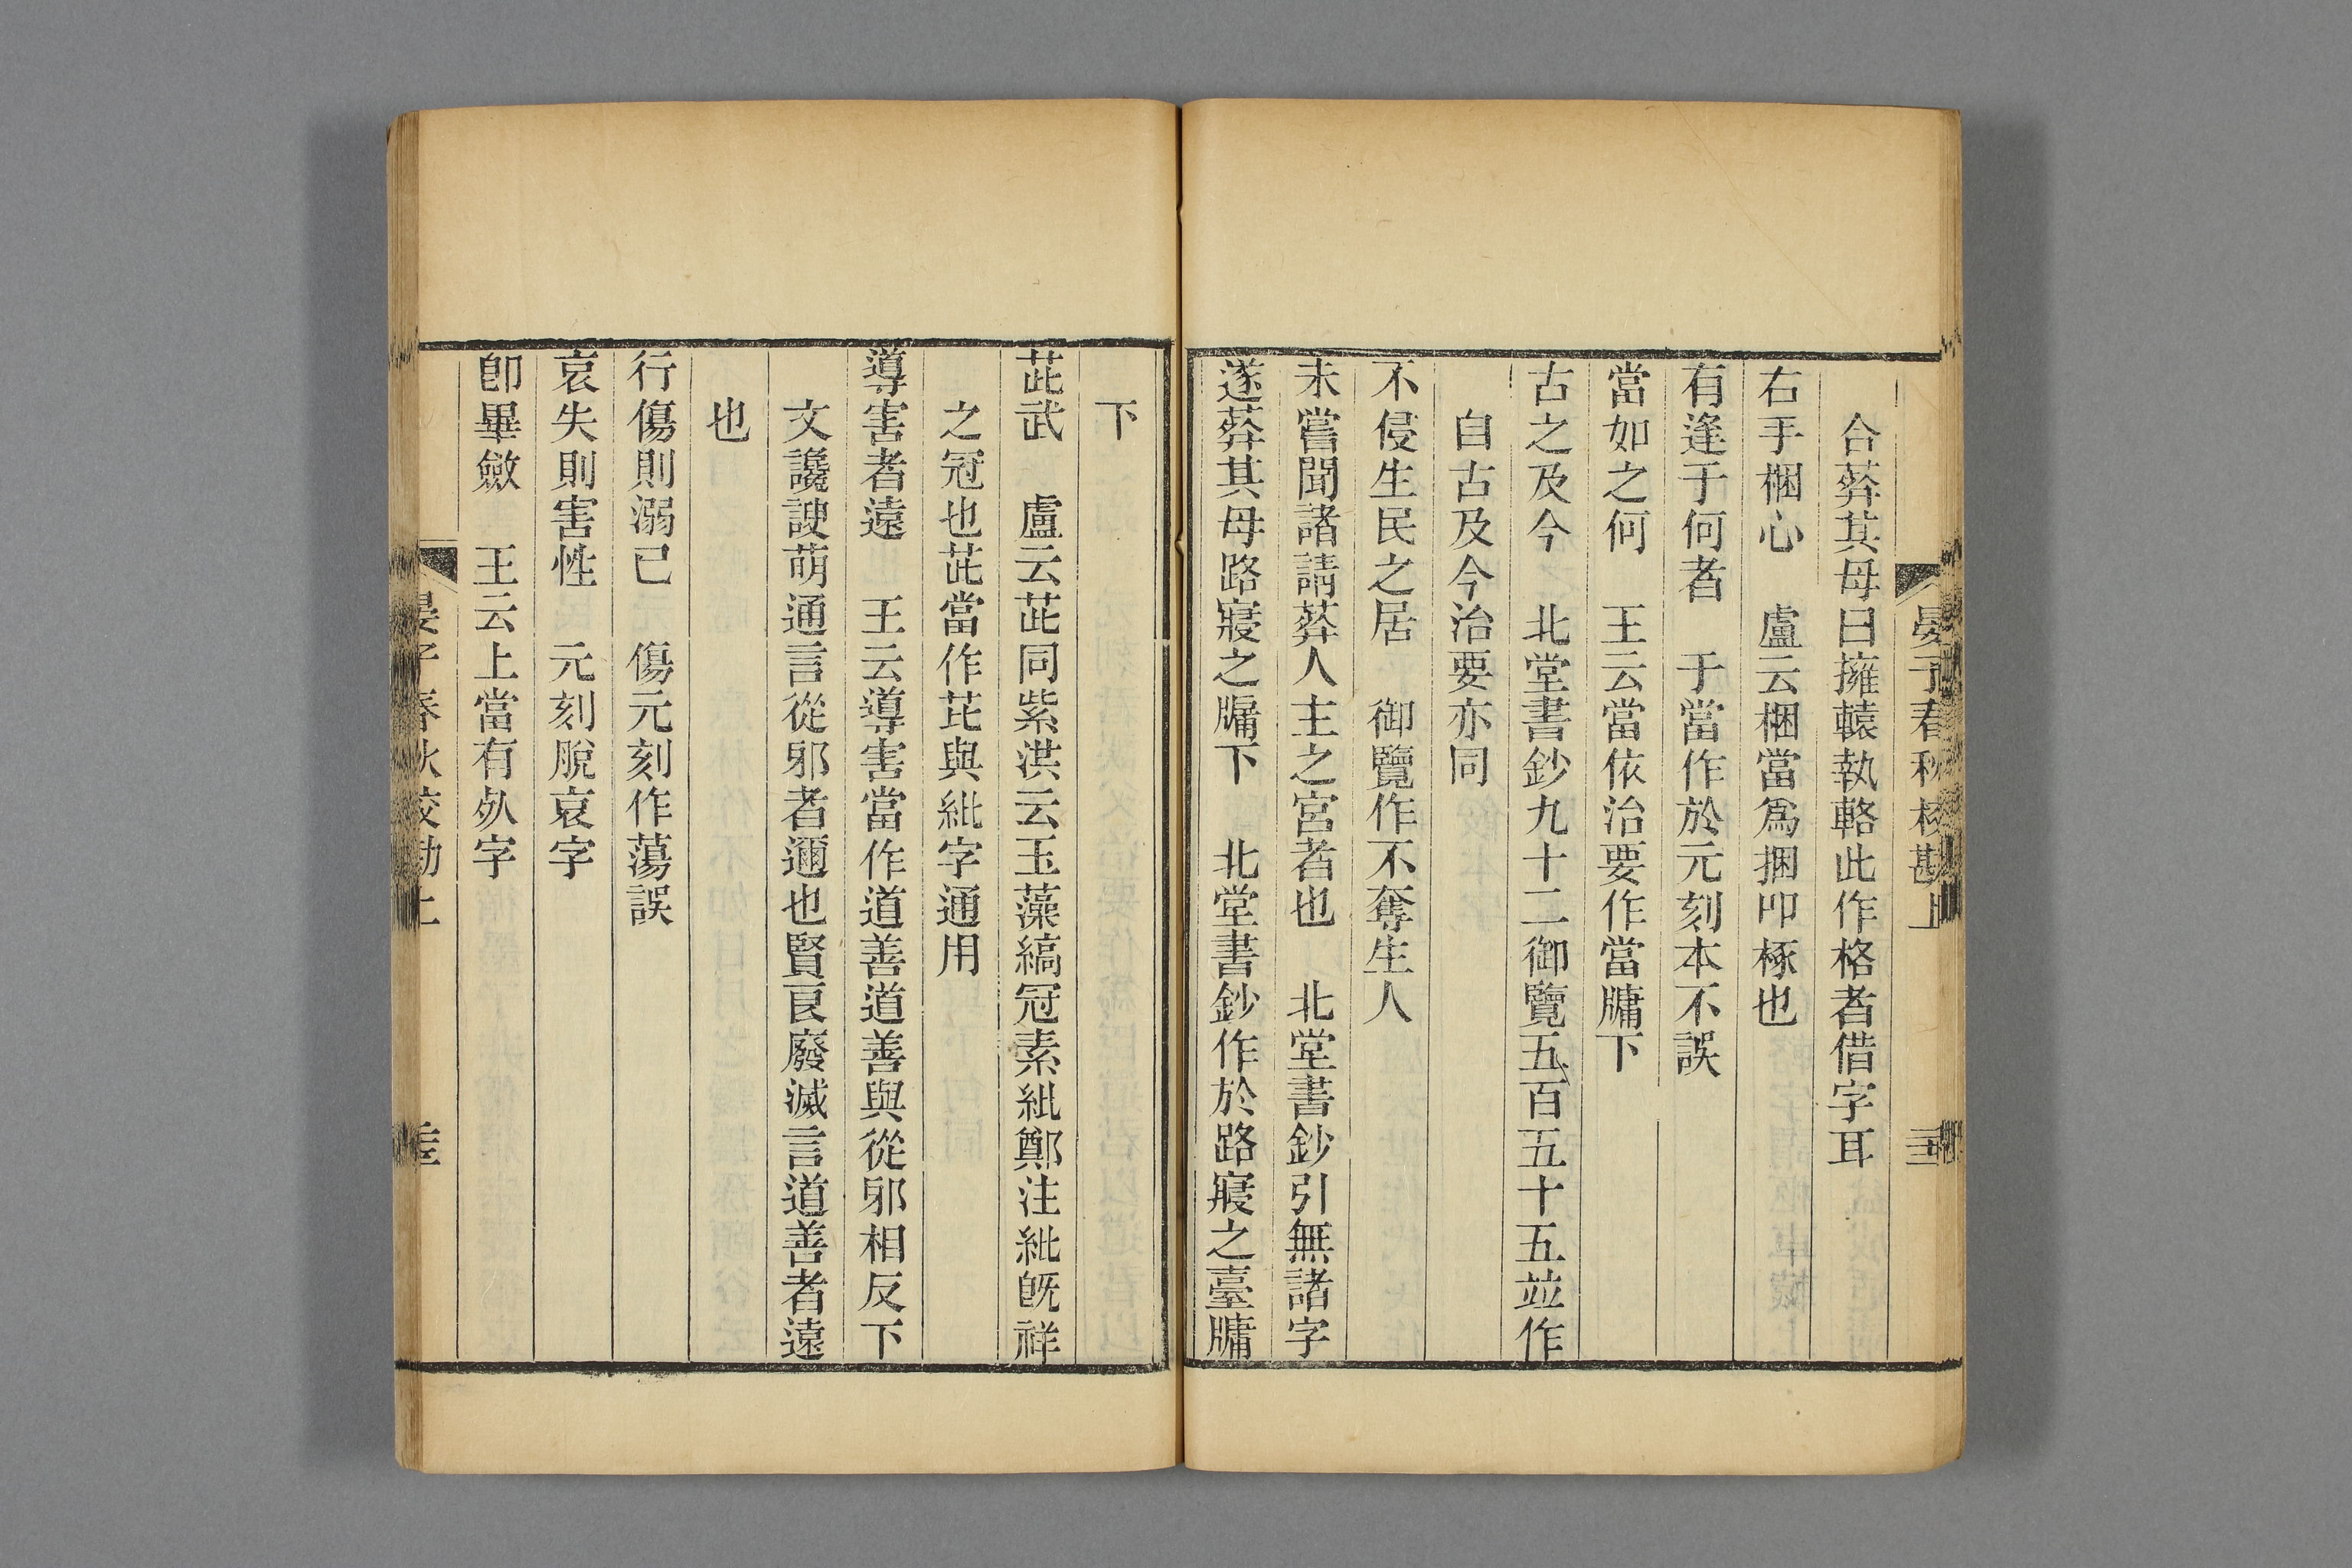 晏子春秋校勘上
合葬其母曰擁轅執輅此作格者借字耳
右手梱心　盧云梱當爲捆叩椓也
有逢于何者　于當作於元刻本不誤
當如之何　王云當依治要作當牖下
古之及今　北堂書鈔九十二御覽五百五十五並作
自古及今治要亦同
不侵生民之居　御覽作不奪生人
未嘗聞諸請葬人主之宮者也　北堂書鈔引無諸字
遂葬其母路寢之牖下　北堂書鈔作於路寢之臺牖
下
茈武　盧云茈同紫洪云玉藻縞冠素紕鄭注紕既祥
之冠也茈當作芘與紕字通用
導害者遠　王云導害當作道善道善與從邪相反下
文讒諛萌通言從邪者邇也賢良廢滅言道善者遠
也
行傷則溺已　傷元刻作蕩誤
哀失則害性　元刻脫哀字
卽畢斂　王云上當有㱾字
晏子春秋校勘上